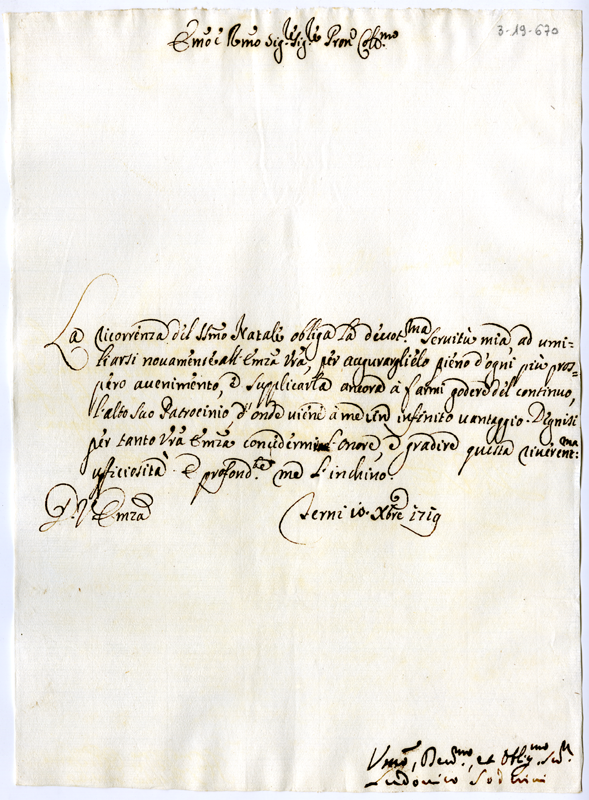 3-19-670
Emo e Rmo Sig.re Sig.re Pron Colmo
La ricorrenza del SSmo Natale obliga la devot.ma Servitù mia ad umi-
liarsi novamente all' Emza Vra, per augurarglielo pieno d'ogni più pros=
pero avenimento, e supplicarla ancora à farmi godere del continuo,
l'alto suo Patrocinio d'onde viene à me un infinito vantaggio. Degnisi
per tanto Vra Emza concedermi l'onore, e gradire questa riverent:ma
ufficiosità. E profond.te me l'inchino.
D. V. Emza
Terni 10. Xbre 1719
Vmo, Devmo, et Oblig.mo Ser.re
Ludovico